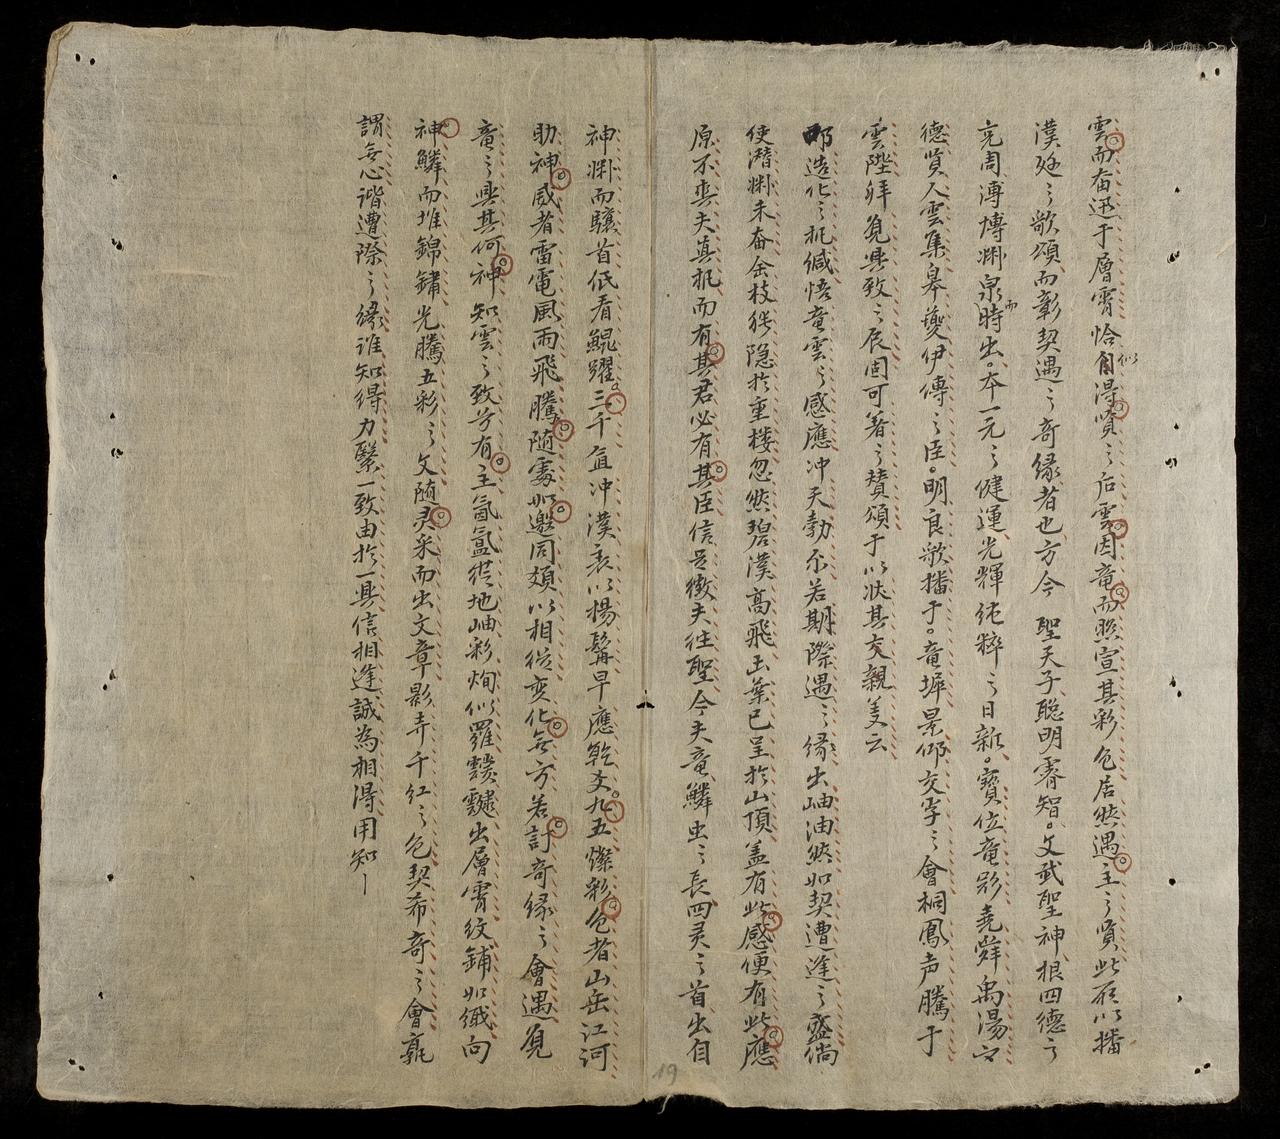 雲而奋迅于層霄恰似自得賢之后雲因竜而照宣其彩色居然遇主之賢此所以播
漢廷之歌頌而彰契遇之奇縁者也方今聖天子聡明睿智文武聖神根四德之
元周溥博淵泉而時出本一元之健運光輝純粹之日新寳位竜影堯舜禹湯
德賢人雲集皋夔伊傅之臣明良歌播于竜墀景仰交孚之會桐鳳声騰于
雲陛拜覓興致之辰固可著之賛頌于以狀其交親美云
造化之机緘悟竜雲之感應冲天勃尔若期際遇之縁出岫油然如契遭逢之盛倘
使潛淵未奋金枝能隐於重楼忽然碧漢髙飛玉葉已呈於山頂盖有此感便有此應
原不丧夫真机而有其君必有其臣信足徵夫往聖今夫竜鱗虫之長四灵之首出自
神淵而驤首低看鯤躍三千直冲漢表以楊髯早應乾爻九五燦彩色者山岳江河
助神威者雷電風雨飛騰随處如邀同類以相従变化無方若訂奇縁之會遇覓
竜之興其何神知雲之致兮有主氤氲從地岫彩炯似羅靉靆出層霄紋鋪如織向
神鱗而堆錦鏽光騰五彩之文随灵采而出文章影弄千红之色契希奇之會孰
謂無心諧遭際之縁谁知得力繄一致由於一興信相逢誠為相得用知
19